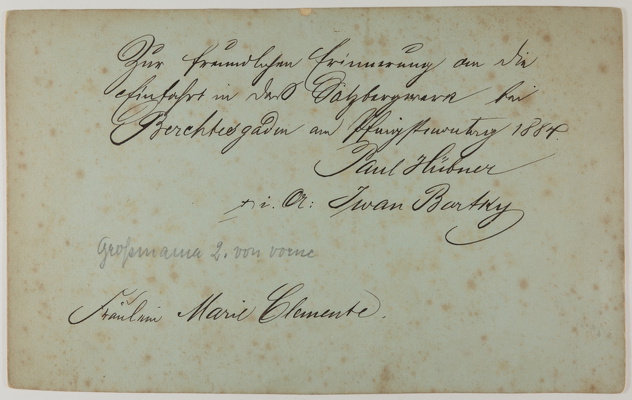 Zur freundlichen Erinnerung an die
Einfahrt in das Salzbergwerk bei
Berchtesgaden am Pfingstsonntag 1884.
Paul Hübner
i. A: Iwan Bartky
Großmama 2. von vorne
Fräulein Marie Clemente.